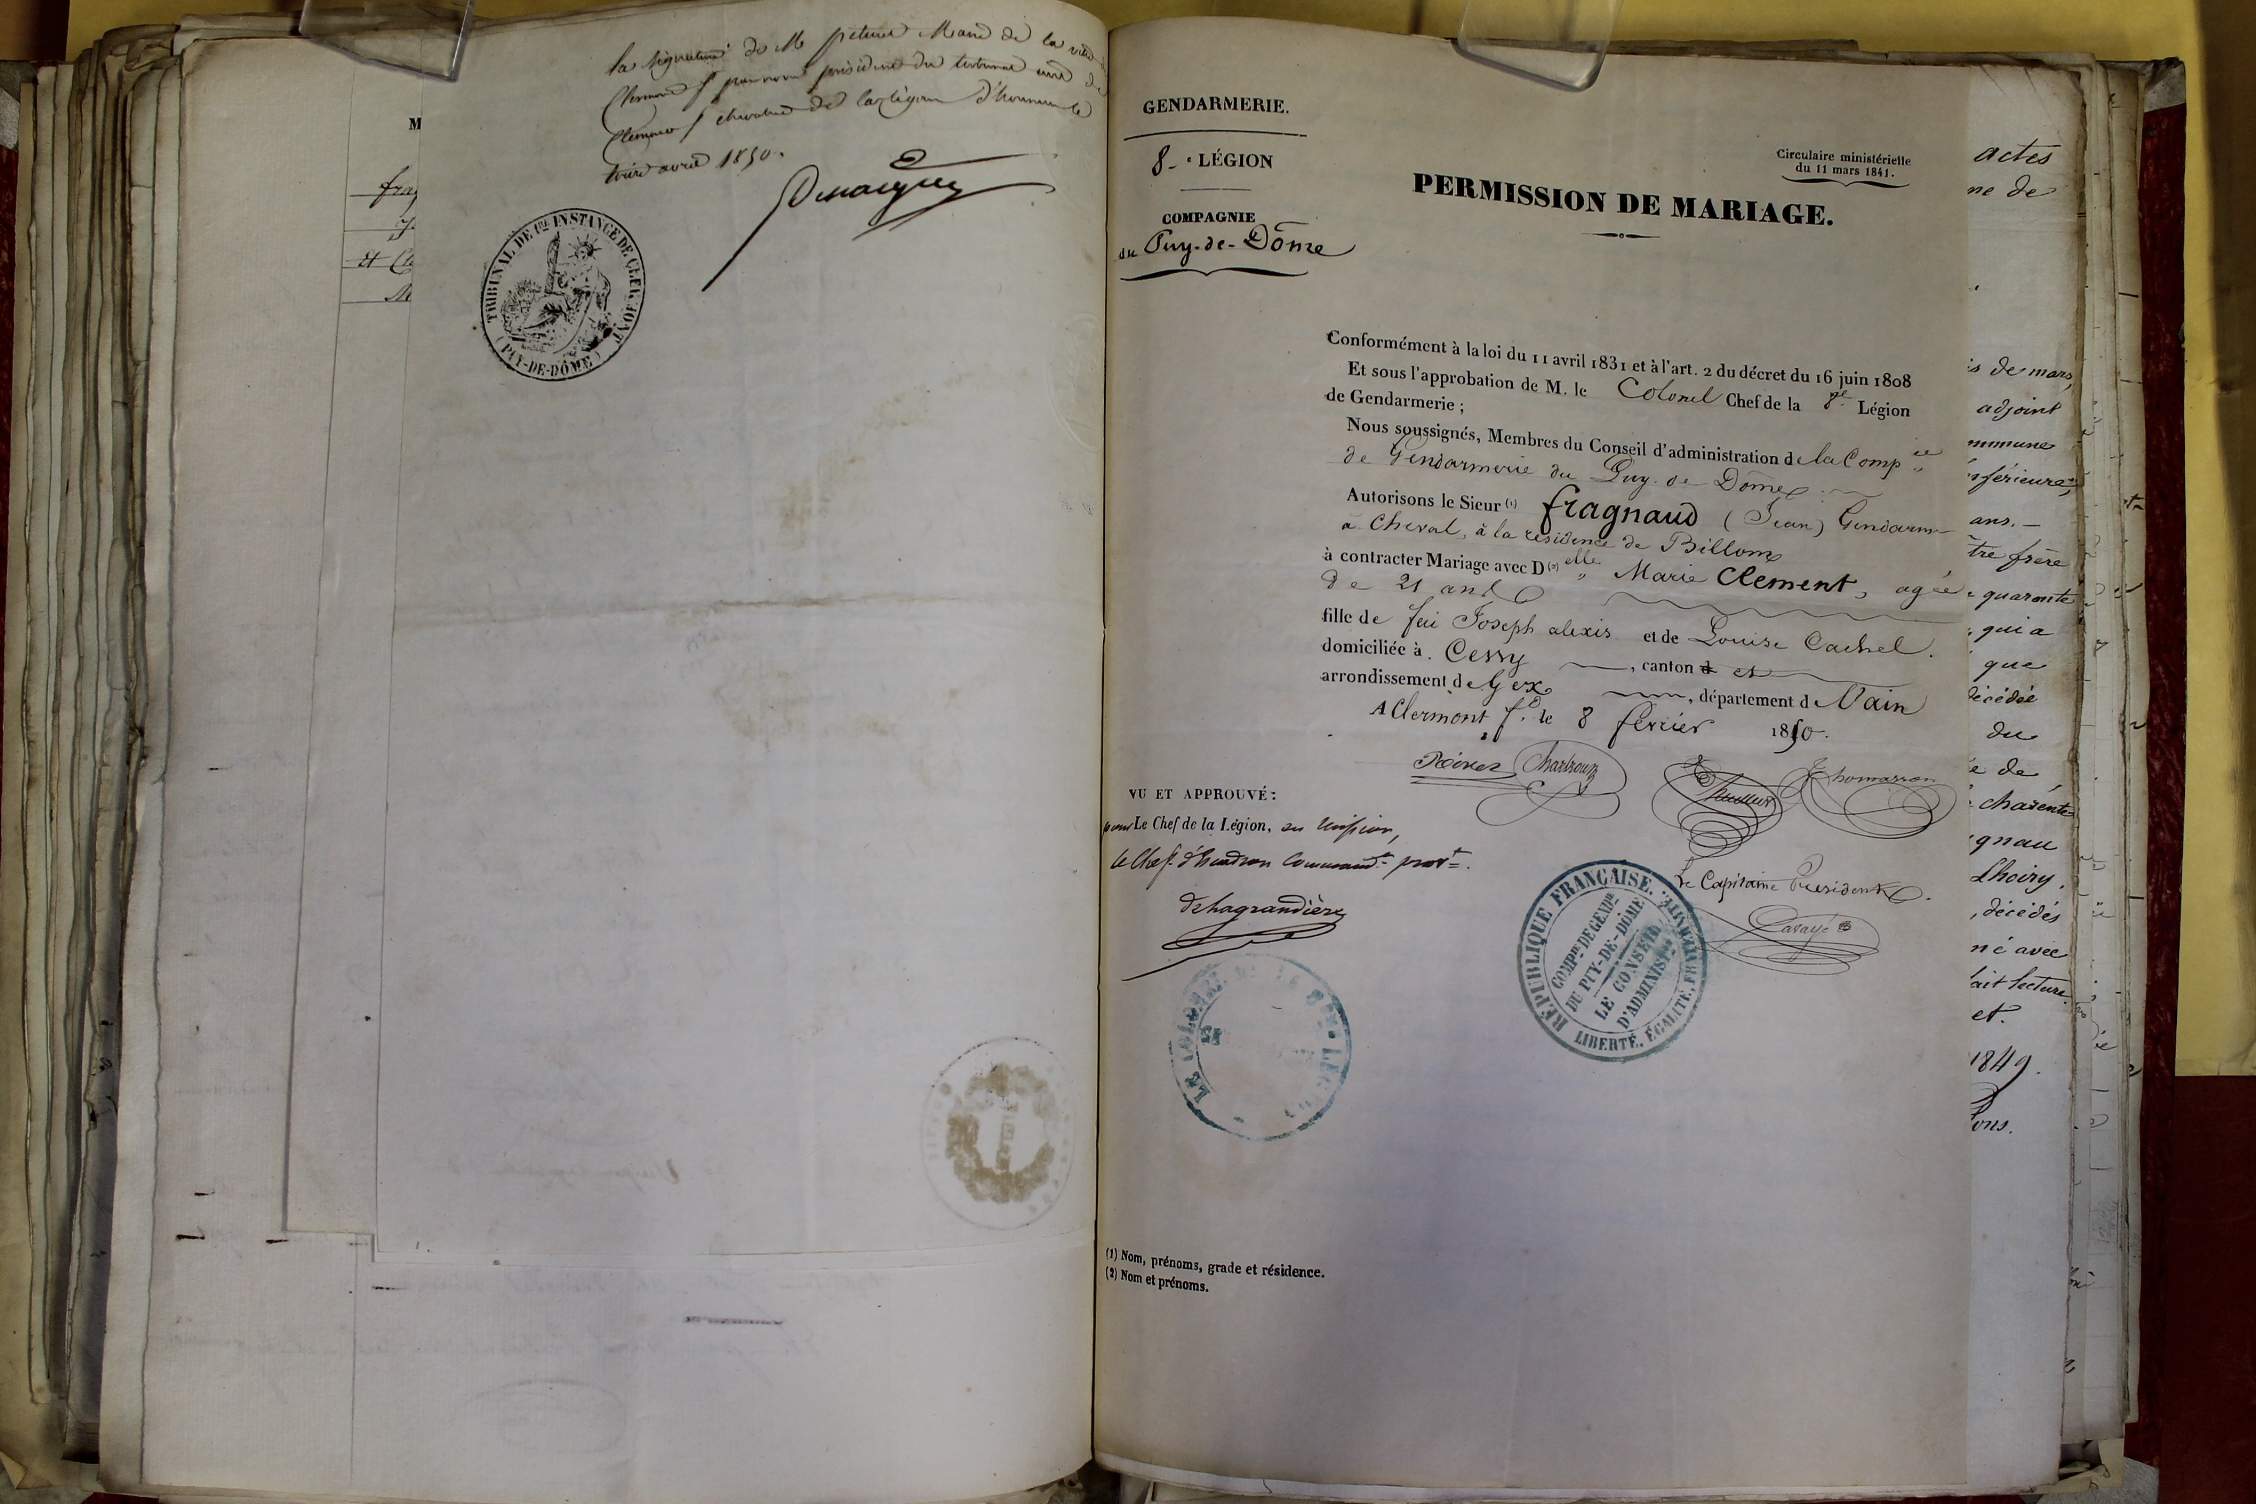 la signature de M Maire de la ville de
Clermont fd par nous président du tribunal civil de
Clermont fd chevalier de la légion d'honneur le
trois avril 1850.
TRIBUNAL DE 1re INSTANCE DE CLERMONT
(PUY-DE-DÔME)
M
frag
et Cl
GENDARMERIE.
8e LÉGION
COMPAGNIE
du Puy-de-Dôme
Circulaire ministérielle
du 11 mars 1841.
PERMISSION DE MARIAGE.
Conformément à la loi du 11 avril 1831 et à l'art. 2 du décret du 16 juin 1808
Et sous l'approbation de M. le Colonel Chef de la 8e Légion
de Gendarmerie ;
Nous soussignés, Membres du Conseil d'administration de la Compie
de Gendarmerie du Puy-de-Dôme
Autorisons le Sieur (1) fragnaud (Jean) Gendarme
à Cheval, à la résidence de Billom
à contracter Mariage avec D(2)elle Marie Clément, agée
de 21 ans
fille de feu Joseph alexis et de Louise Cachel.
domiciliée à Cessy, canton d et
arrondissement de Gex, département de l'ain
A Clermont fd le 8 février 1850.
Chartroux
Thomasson
VU ET APPROUVÉ :
pour Le Chef de la Légion, en mission,
le Chef d'Escadron Commandt provre.
de Lagrandière
Le Capitaine Président
Lavayé
RÉPUBLIQUE FRANÇAISE.
LIBERTÉ, ÉGALITÉ, FRATERNITÉ.
COMPie DE GENDie
DU PUY-DE-DÔME
LE CONSEIL
D'ADMINISTon
LE COLONEL DE LA 8me LÉGION
(1) Nom, prénoms, grade et résidence.
(2) Nom et prénoms.
actes
ne de
is de mars,
adjoint
mmune
inférieure,
ans.
tre frère
quarante
qui a
que
décédée
du
e de
charente
gnau
Lhoiry.
, décédés
né avec
fait lecture
et.
1849.
Pons.